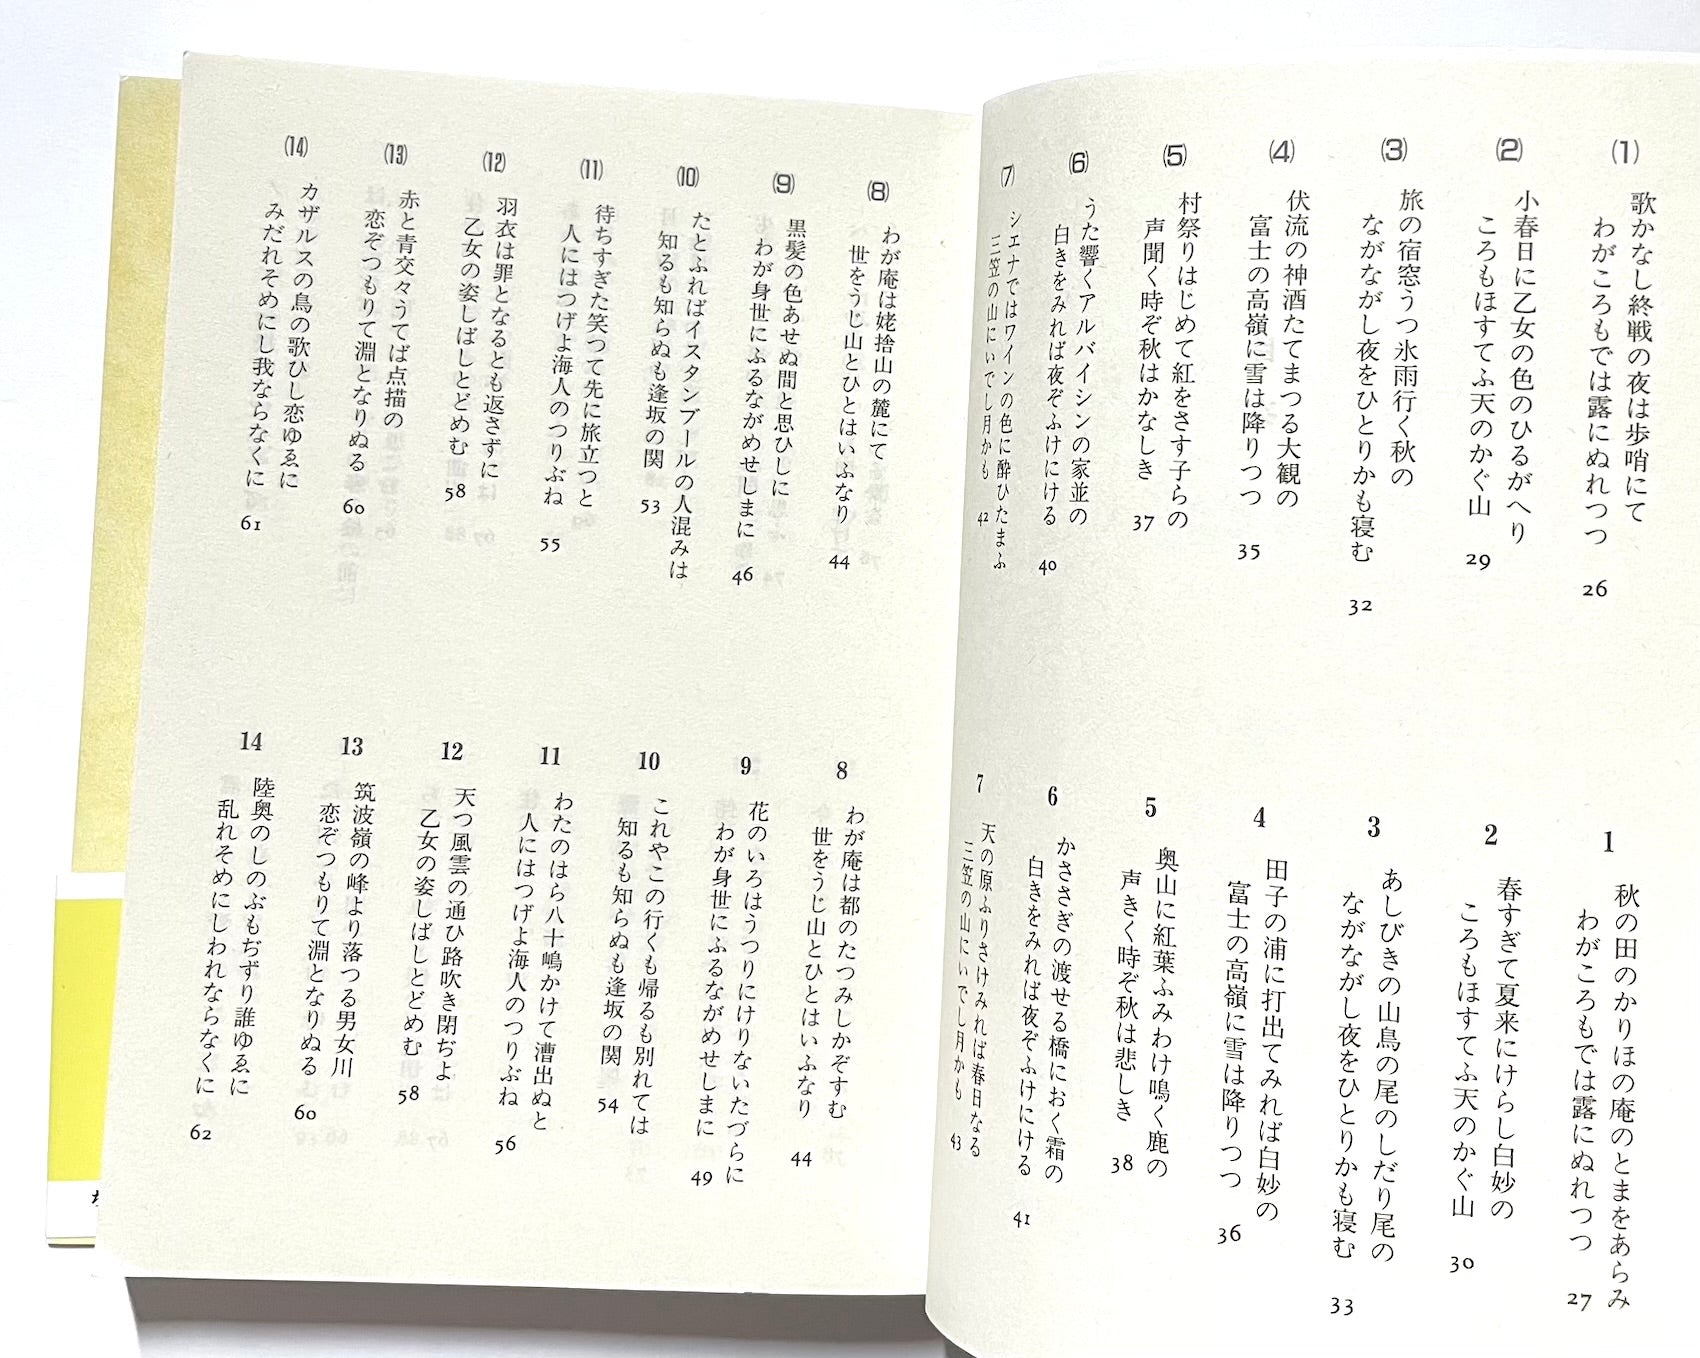 (1)
歌かなし終戦の夜は歩哨にて
わがころもでは露にぬれつつ 26
(2)
小春日に乙女の色のひるがへり
ころもほすてふ天のかぐ山 29
(3)
旅の宿窓うつ氷雨行く秋の
ながながし夜をひとりかも寝む 32
(4)
伏流の神酒たてまつる大観の
富士の高嶺に雪は降りつつ 35
(5)
村祭りはじめて紅をさす子らの
声聞く時ぞ秋はかなしき 37
(6)
うた響くアルバイシンの家並の
白きをみれば夜ぞふけにける 40
(7)
シエナではワインの色に酔ひたまふ
三笠の山にいでし月かも 42
1
秋の田のかりほの庵のとまをあらみ
わがころもでは露にぬれつつ 27
2
春すぎて夏来にけらし白妙の
ころもほすてふ天のかぐ山 30
3
あしびきの山鳥の尾のしだり尾の
ながながし夜をひとりかも寝む 33
4
田子の浦に打出てみれば白妙の
富士の高嶺に雪は降りつつ 36
5
奥山に紅葉ふみわけ鳴く鹿の
声きく時ぞ秋は悲しき 38
6
かささぎの渡せる橋におく霜の
白きをみれば夜ぞふけにける 41
7
天の原ふりさけみれば春日なる
三笠の山にいでし月かも 43
(8)
わが庵は姥捨山の麓にて
世をうじ山とひとはいふなり 44
(9)
黒髪の色あせぬ間と思ひしに
わが身世にふるながめせしまに 46
(10)
たとふればイスタンブールの人混みは
知るも知らぬも逢坂の関 53
(11)
待ちすぎた笑つて先に旅立つと
人にはつげよ海人のつりぶね 55
(12)
羽衣は罪となるとも返さずに
乙女の姿しばしとどめむ 58
(13)
赤と青交々うてば点描の
恋ぞつもりて淵となりぬる 60
(14)
カザルスの鳥の歌ひし恋ゆゑに
みだれそめにし我ならなくに 61
8
わが庵は都のたつみしかぞすむ
世をうじ山とひとはいふなり 44
9
花のいろはうつりにけりないたづらに
わが身世にふるながめせしまに 49
10
これやこの行くも帰るも別れては
知るも知らぬも逢坂の関 54
11
わたのはら八十嶋かけて漕出ぬと
人にはつげよ海人のつりぶね 56
12
天つ風雲の通ひ路吹き閉ぢよ
乙女の姿しばしとどめむ 58
13
筑波嶺の峰より落つる男女川
恋ぞつもりて淵となりぬる 60
14
陸奥のしのぶもぢずり誰ゆゑに
乱れそめにしわれならなくに 62